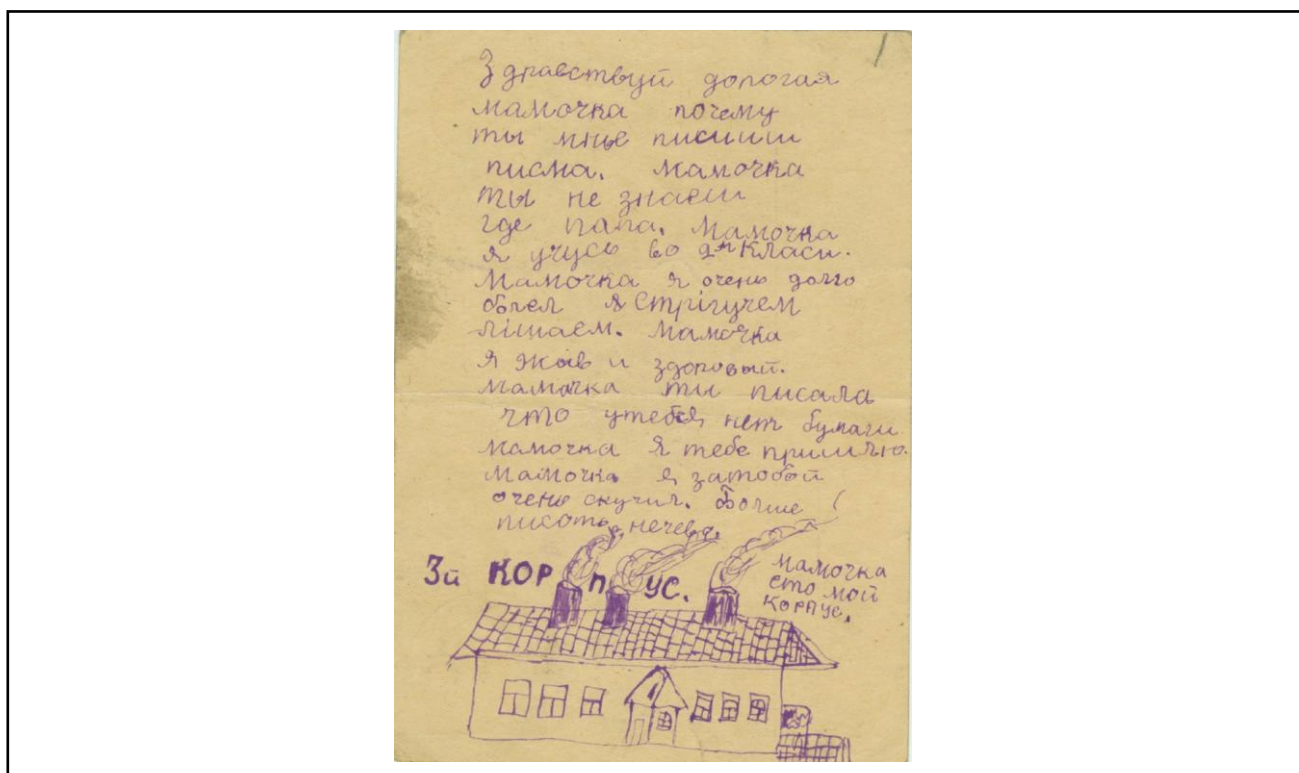 Здравствуй дорогая
мамочка почему
ты мне пишиш
писма. мамочка
ты не знаеш
где папа. мамочка
я учусь во 2м Класи.
мамочка я очень долго
болел Стрігучем
лішаем. мамочка
я жыв и здоровый.
мамочка ты писала
что утебя нет бумаги
мамочка я тебе пришлю.
мамочка я затобой
очень скучил. болше
писоть нечева.
3й КОРПУС.
мамочка
ето мой
корпус.